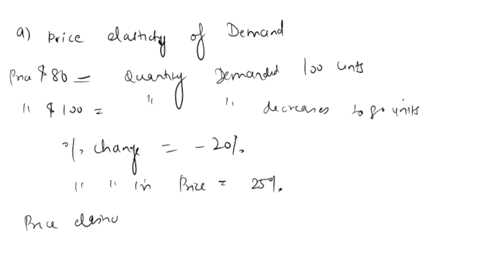 a) Price elasticity of Demand
Price $80 = Quantity Demanded 100 units
" $100 = " " decreases to 80 units
% change = -20%.
" " in Price = 25%.
Price